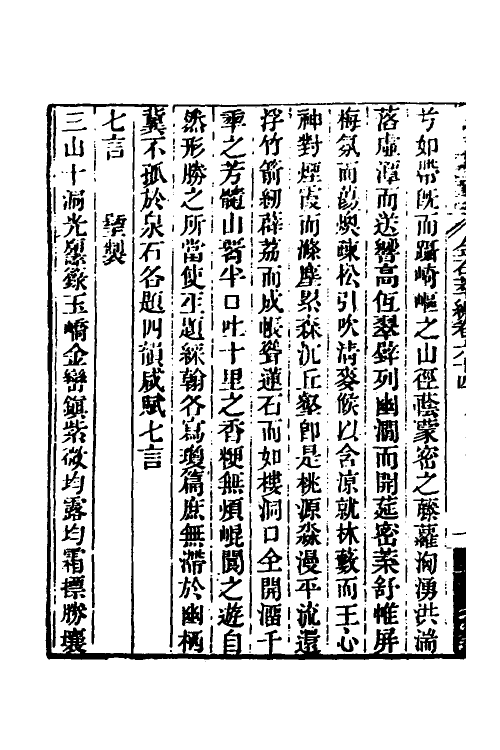 兮如帶旣而躡崎嶇之山徑蔭蒙密之藤蘿洶湧洪湍
落虛潭而送響高低翠壁列幽澗而開筵密葉舒帷屏
梅氛而蕩燠疎松引吹淸麥候以含涼就林藪而王心
神對煙霞而滌塵累森沉丘壑卽是桃源淼漫平流還
浮竹箭紉薜荔而成帳聳蓮石而如樓洞口全開溜千
年之芳髓山腰半口吐十里之香粳無煩崐閬之遊自
然形勝之所當使人題綵翰各寫瓊篇庶無滯於幽栖
冀不孤於泉石各題四韻咸賦七言
七言 聖製
三山十洞光玄籙玉嶠金巒鎭紫微均露均霜標勝壤